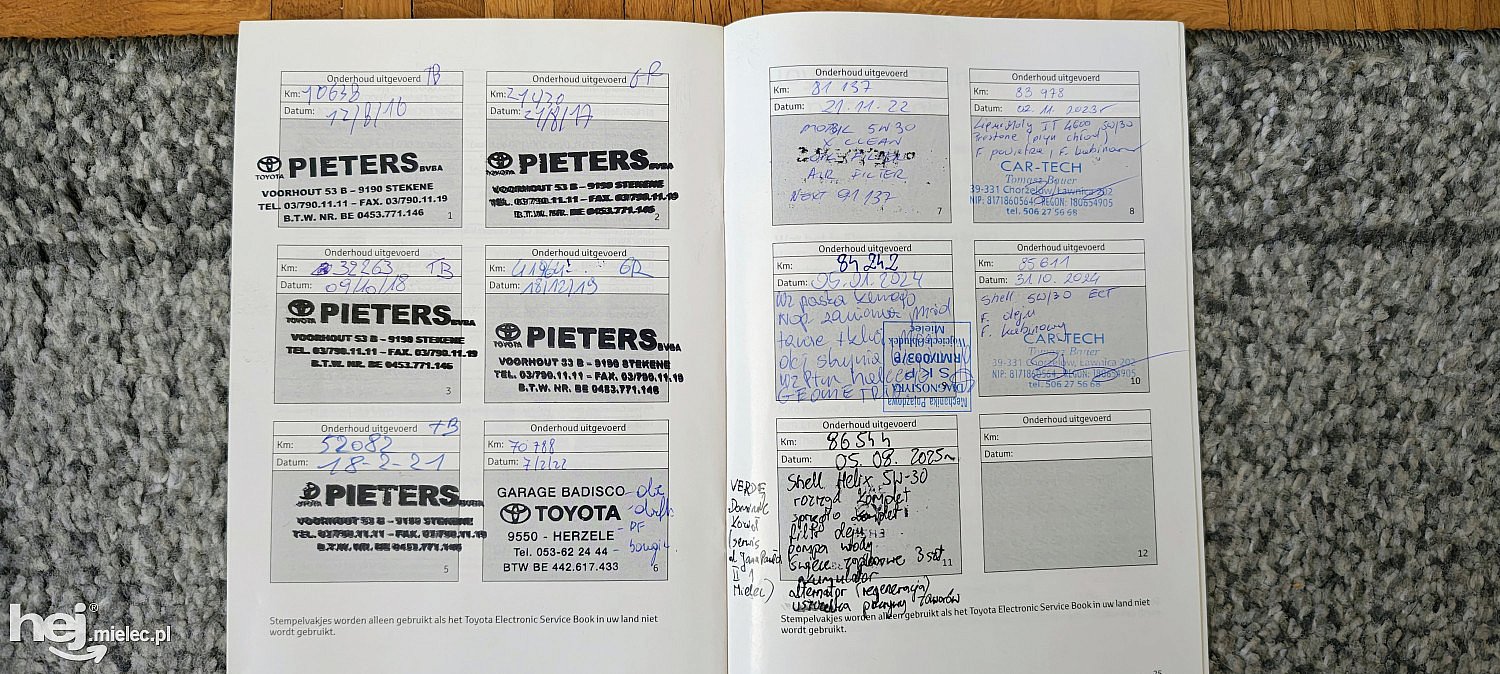 Onderhoud uitgevoerd TB
Km: 10638
Datum: 12/8/16
TOYOTA PIETERS BVBA
VOORHOUT 53 B – 9190 STEKENE
TEL. 03/790.11.11 – FAX. 03/790.11.19
B.T.W. NR. BE 0453.771.146
1
Onderhoud uitgevoerd GR
Km: 21420
Datum: 21/8/17
TOYOTA PIETERS BVBA
VOORHOUT 53 B – 9190 STEKENE
TEL. 03/790.11.11 – FAX. 03/790.11.19
B.T.W. NR. BE 0453.771.146
2
Onderhoud uitgevoerd
Km: 32263 TB
Datum: 09/10/18
TOYOTA PIETERS BVBA
VOORHOUT 53 B – 9190 STEKENE
TEL. 03/790.11.11 – FAX. 03/790.11.19
B.T.W. NR. BE 0453.771.146
3
Onderhoud uitgevoerd
Km: GR
Datum: 18/12/19
TOYOTA PIETERS BVBA
VOORHOUT 53 B – 9190 STEKENE
TEL. 03/790.11.11 – FAX. 03/790.11.19
B.T.W. NR. BE 0453.771.146
Onderhoud uitgevoerd TB
Km: 52082
Datum: 18-2-21
PIETERS BVBA
VOORHOUT 53 B – 9190 STEKENE
TEL. 03/790.11.11 – FAX. 03/790.11.19
B.T.W. NR. BE 0453.771.146
5
Onderhoud uitgevoerd
Km: 70788
Datum: 7/2/22
GARAGE BADISCO
TOYOTA
9550 - HERZELE
Tel. 053-62 24 44 - bougie
BTW BE 442.617.433
6
Stempelvakjes worden alleen gebruikt als het Toyota Electronic Service Book in uw land niet
wordt gebruikt.
Onderhoud uitgevoerd
Km: 81 137
Datum: 21.11.22
MOBIL 5W30
X CLEAN
OIL FILTER
AIR FILTER
NEXT 91 137
7
Onderhoud uitgevoerd
Km: 83 978
Datum: 02.11.2023r
Liqui Moly TT 4600 5W/30
Prestone (płyn chłod)
F powietrza, F. kabinowy
CAR-TECH
Tomasz Bauer
39-331 Chorzelów, Ławnica 202
NIP: 8171860564 REGON: 180654905
tel. 506 27 56 68
8
Onderhoud uitgevoerd
Km: 84242
Datum: 05.01.2024
Wz paska
GEOMETRIA
Mechanika Pojazdowa
DIAGNOSTYKA
S K P
RMI/003/P
Wojciech
Mielec
Onderhoud uitgevoerd
Km: 85611
Datum: 31.10.2024
Shell 5W/30 ECT
F. oleju
F. kabinowy
CAR-TECH
Tomasz Bauer
39-331 Chorzelów, Ławnica 202
NIP: 8171860564 REGON: 180654905
tel. 506 27 56 68
10
Onderhoud uitgevoerd
Km: 86544
Datum: 05.08.2025r
Shell Helix 5W-30
rozrząd komplet
sprzęgło komplet
filtr oleju
pompa wody
świece zapłonowe 3 szt
akumulator
alternator (regeneracja)
uszczelka pokrywy zaworów
11
VERDE
Dominik
Kowal
(serwis
ul Jana Pawła
II 1
Mielec)
Onderhoud uitgevoerd
Km:
Datum:
12
Stempelvakjes worden alleen gebruikt als het Toyota Electronic Service Book in uw land niet
wordt gebruikt.
25
hej.mielec.pl